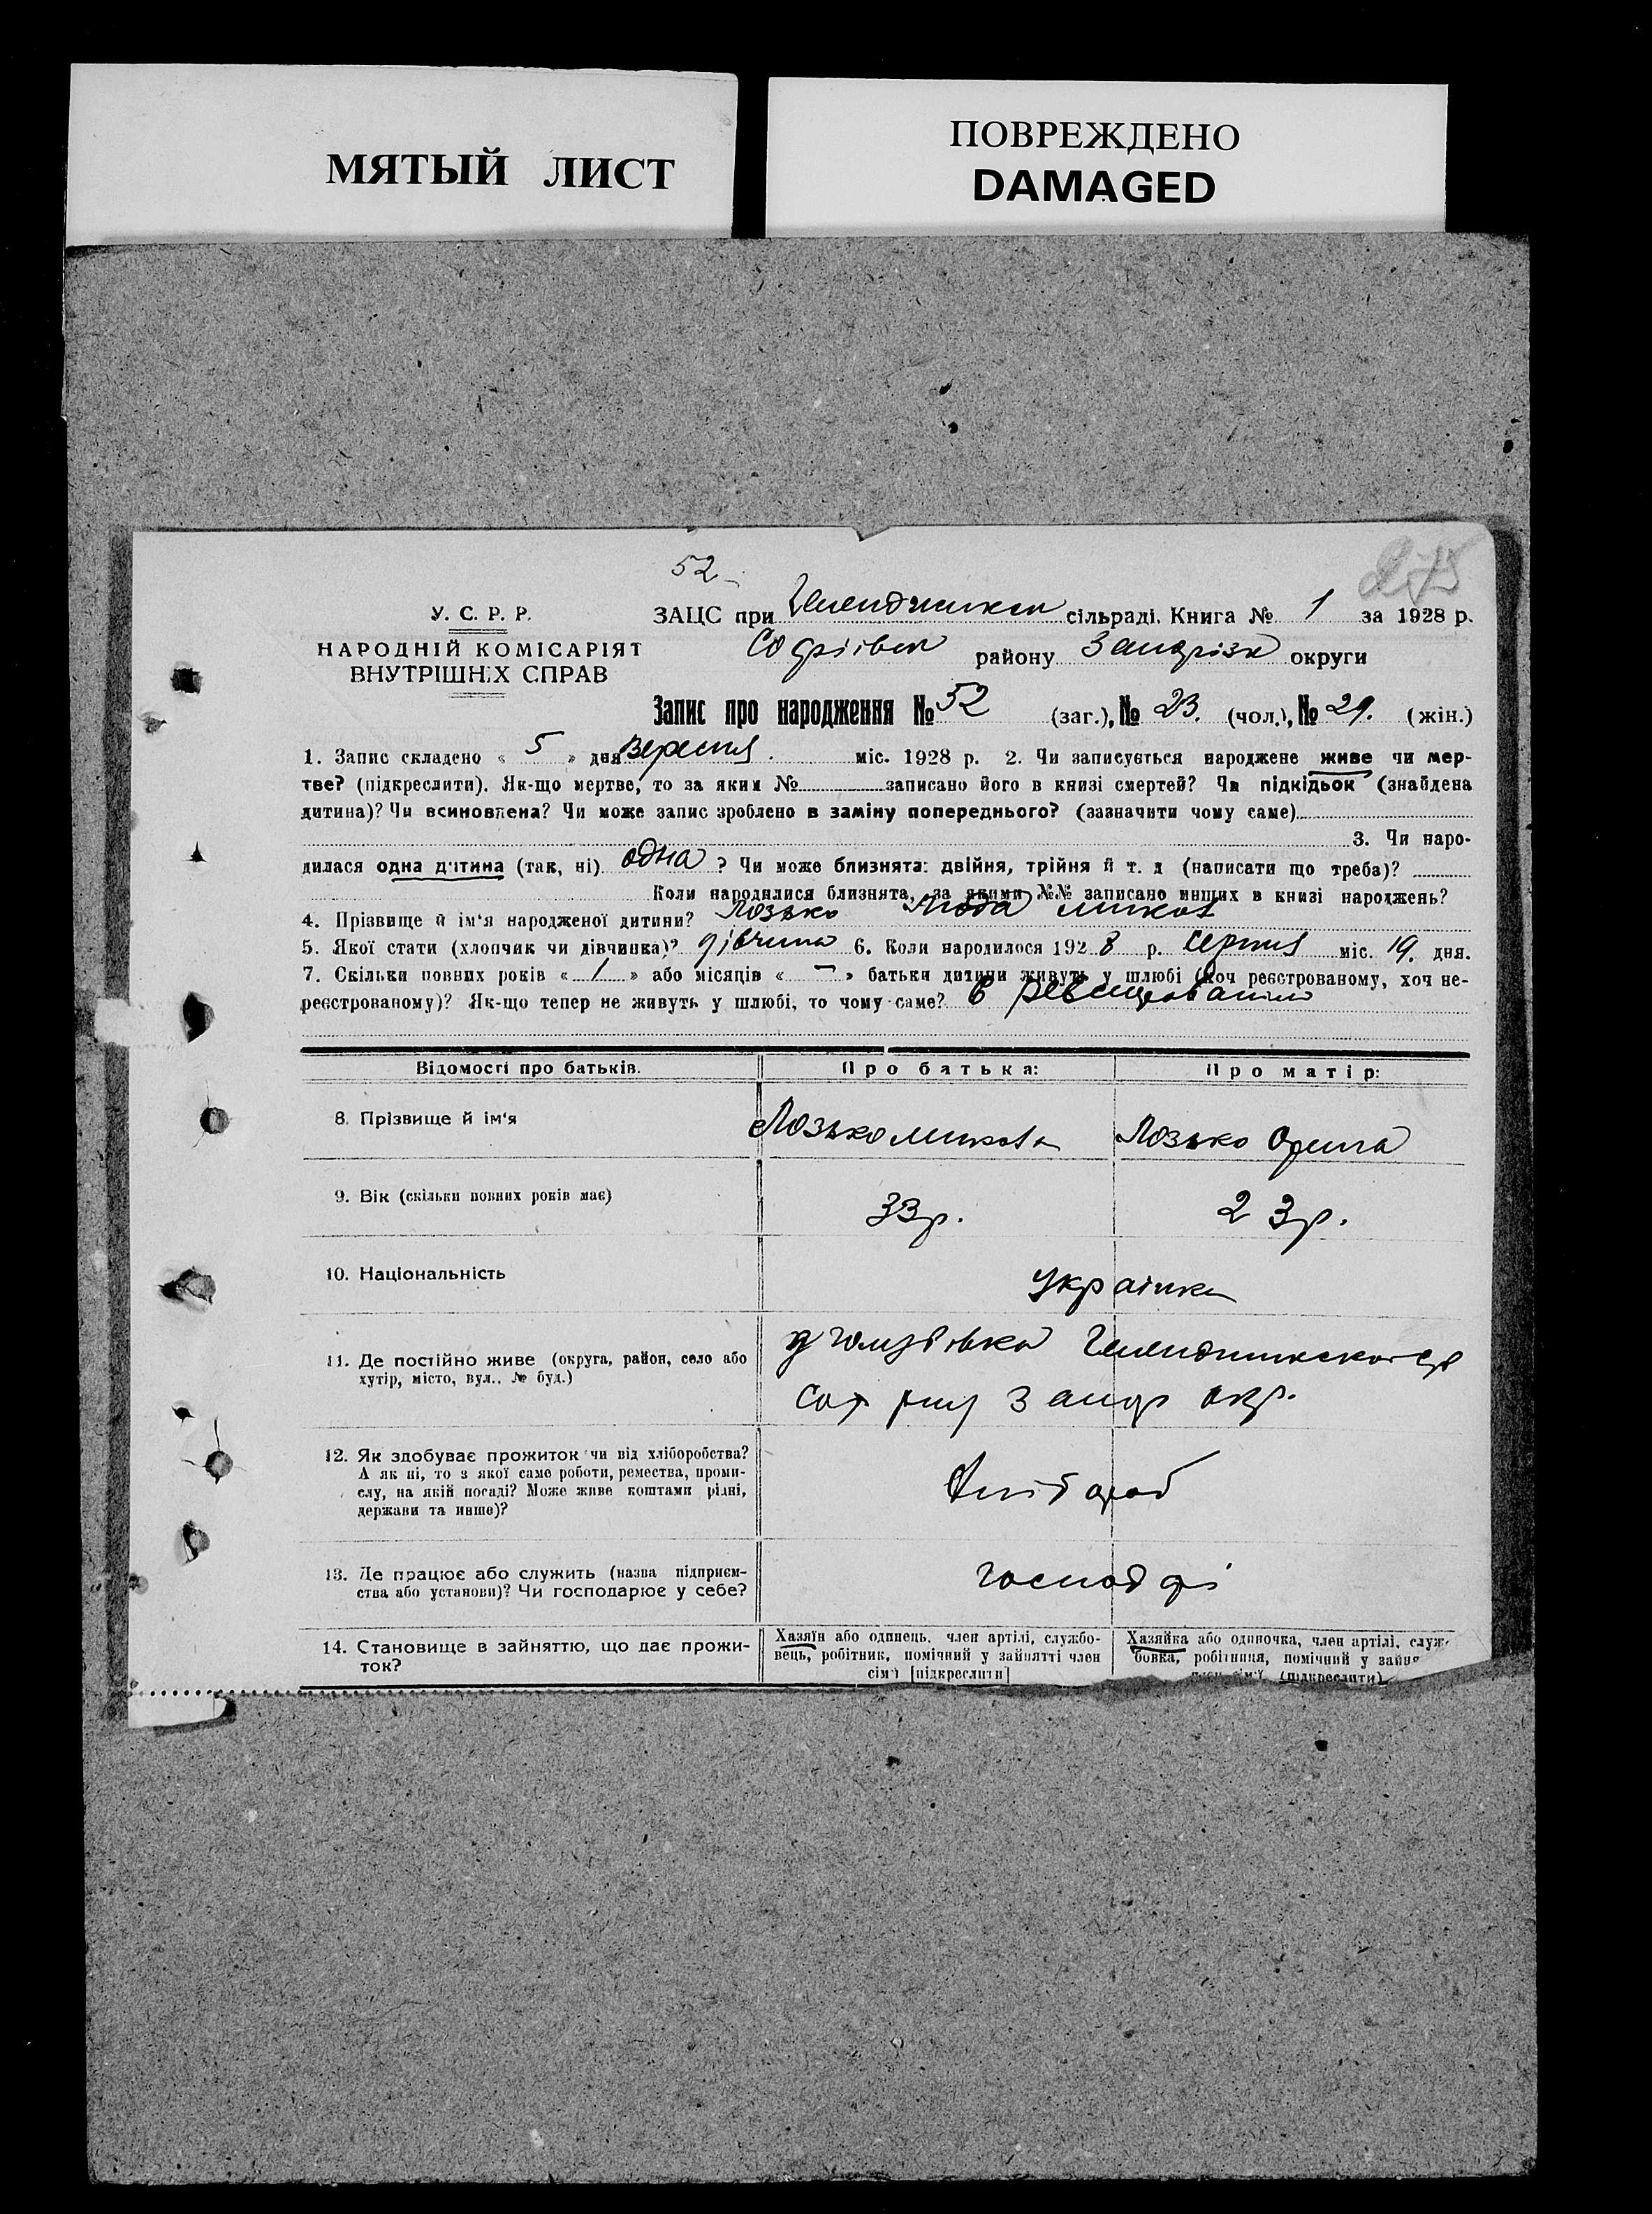 МЯТЫЙ ЛИСТ
ПОВРЕЖДЕНО
DAMAGED
52
У. С. Р. Р.
НАРОДНІЙ КОМІСАРІЯТ
ВНУТРІШНІХ СПРАВ
ЗАЦС при сільраді. Книга № 1 за 1928 р.
району округи
Запис про народження № 52 (заг.), № 23. (чол.), № 29. (жін.)
1. Запис складено « 5 » дня Вересня міс. 1928 р. 2. Чи записується народжене живе чи мер-
тве? (підкреслити). Як-що мертве, то за яким № записано його в книзі смертей? Чи підкідьок (знайдена
дитина)? Чи всиновлена? Чи може запис зроблено в заміну попереднього? (зазначити чому саме)
3. Чи наро-
дилася одна дитина (так, ні) одна ? Чи може близнята: двійня, трійня й т. д (написати що треба)?
Коли народилися близнята, за якими №№ записано инших в книзі народжень?
4. Прізвище й ім'я народженої дитини? Лозько Люба
5. Якої стати (хлопчик чи дівчинка)? дівчина 6. Коли народилося 192 8 р. серпня міс. 19. дня.
7. Скільки повних років « 1 » або місяців « — » батьки дитини живуть у шлюбі (хоч реєстрованому, хоч не-
реєстрованому)? Як-що тепер не живуть у шлюбі, то чому саме? в
Відомості про батьків. Про батька: Про матір:
8. Прізвище й ім'я Лозько Микола Лозько Орина
9. Вік (скільки повних років має) 33р. 23р.
10. Національність Українка
11. Де постійно живе (округа, район, село або
хутір, місто, вул.. № буд.)
12. Як здобуває прожиток чи від хліборобства?
А як ні, то з якої саме роботи, ремества, проми-
слу, на якій посаді? Може живе коштами рідні,
держави та инше)?
Хлібороб
13. Де працює або служить (назва підприєм-
ства або установи)? Чи господарює у себе?
14. Становище в зайняттю, що дає прожи-
ток?
Хазяїн або одинець, член артілі, службо-
вець, робітник, помічний у зайнятті член
сім'ї [підкреслити]
Хазяйка або одиночка, член артілі, служ
бовка, робітниця, помічний у зайня
(підкреслити)